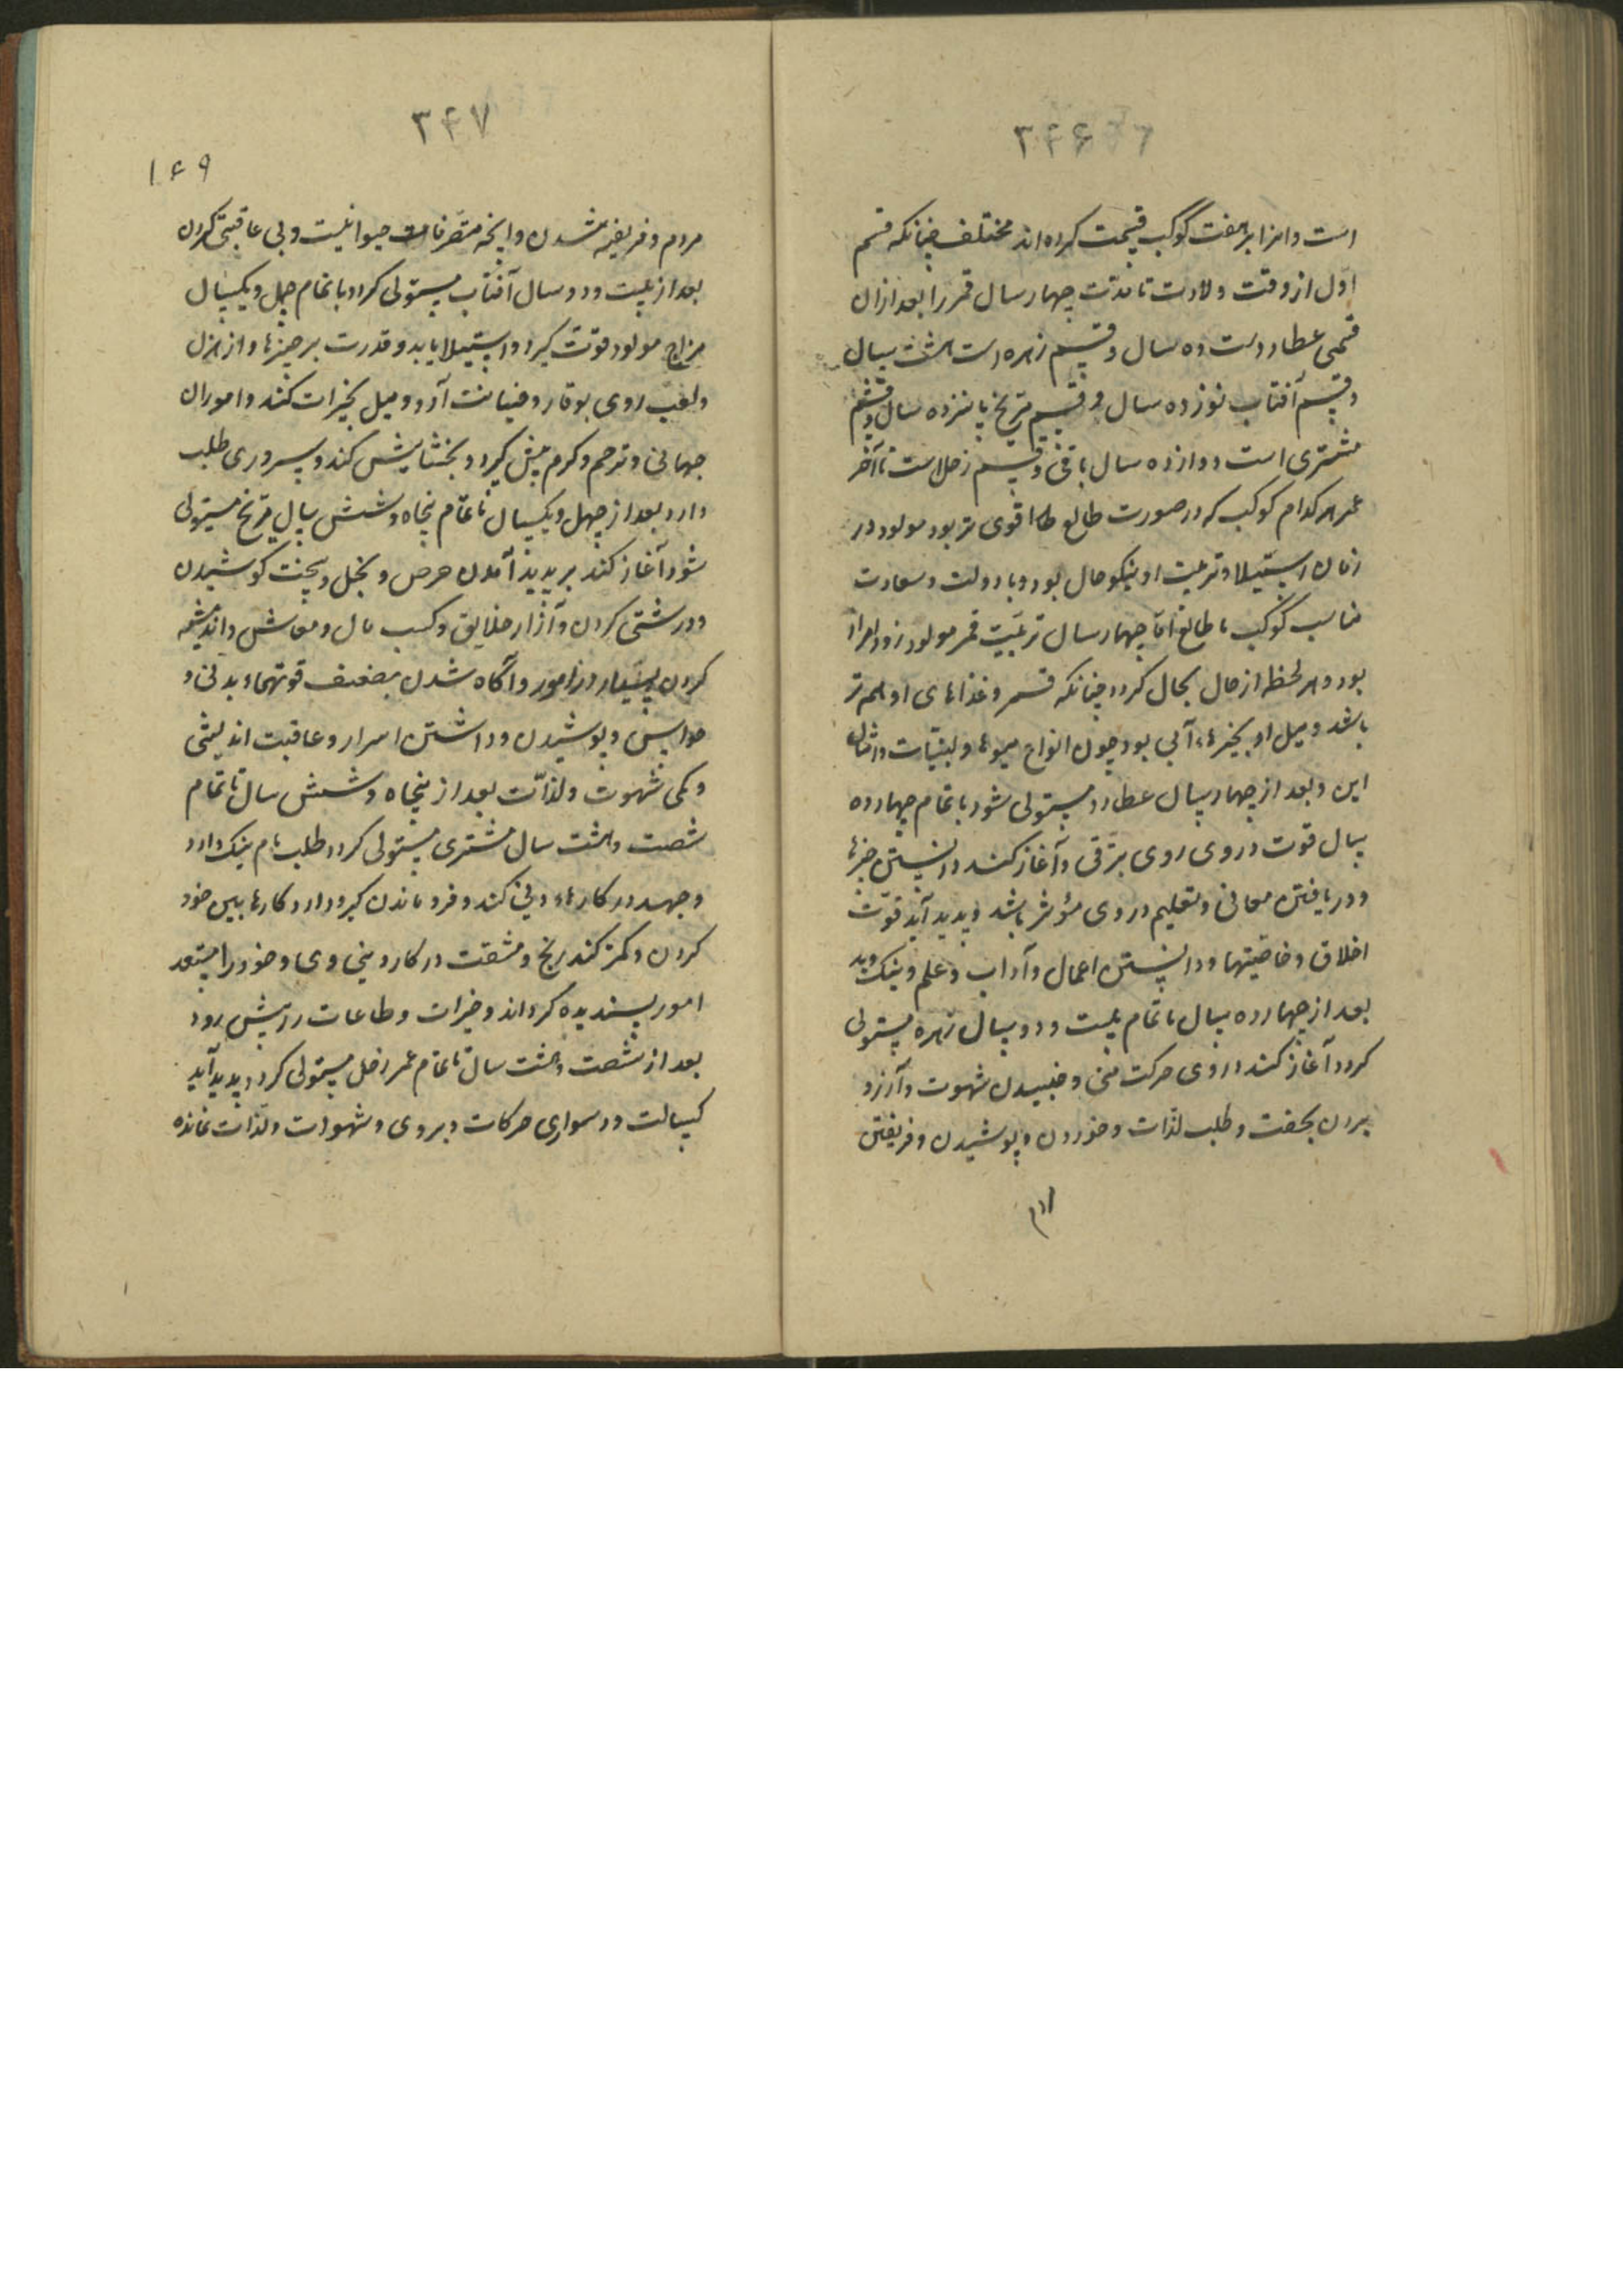 ۳۴۶
است و آنرا بر هفت کوکب قسمت کرده‌اند مختلف چنانکه قسم
اول از وقت ولادت تا مدت چهار سال قمر را بعد از آن
قسمی عطاردست ده سال و قسم زهره است هشت سال
و قسم آفتاب نوزده سال و قسم مریخ پانزده سال و قسم
مشتری است دوازده سال باقی و قسم زحل است تا آخر
عمر هر کدام کوکب که در صورت طالع قوی‌تر بود مولود در
زمان استیلا و تربیت او نیکو حال بود و با دولت و سعادت
مناسب کوکب با طالع اما چهار سال تربیت قمر مولود زود
بود و هر لحظه از حال بحال کردد چنانکه قمر و غذاهای او هم تر
باشد و میل او بچیزهاء آبی بود چون انواع میوها و لبنیات و امثال
این و بعد از چهار سال عطارد مستولی شود با تمام چهارده
سال قوت در وی روی بترقی و آغاز کند دانستن چیزها
و دریافتن معانی و تعلیم در وی مؤثر باشد و پدید آید قوت
اخلاق و خاصیتها و دانستن اعمال و آداب و علم و نیک و بد
بعد از چهارده سال تا تمام بیست و دو سال زهره مستولی
کردد آغاز کند در وی حرکت منی و جنبیدن شهوت و آرزو
بردن بجفت و طلب لذات و خوردن و پوشیدن و فریفتن
۳۴۷
۱۶۹
مردم و فریفته شدن و آنچه متصرفات حیوانیست و بی عاقبتی کردن
بعد از بیست و دو سال آفتاب مستولی کردد با تمام چهل و یکسال
مزاج مولود قوت کیرد و استیلا یابد و قدرت بر چیزها و از هزل
و لعب روی بوقار و ضیانت آرد و میل بخیرات کند و امور آن
جهانی و ترحم و کرم پیش کیرد و بخشایش کند و سروری طلب
دارد بعد از چهل و یکسال تا تمام پنجاه و شش سال مریخ مستولی
شود آغاز کند بر پدید آمدن حرص و بخل و سخت کوشیدن
و درشتی کردن و آزار خلایق و کسب مال و معاش و اندیشه
کردن بسیار در امور و آگاه شدن بضعف قوتهاء بدنی و
حواس و پوشیدن و داشتن اسرار و عاقبت اندیشی
و کمی شهوت و لذات بعد از پنجاه و شش سال تا تمام
شصت و هشت سال مشتری مستولی کردد طلب نام نیک دارد
و جهد در کارهاء دینی کند و فرو ماندن کیرد از کارها بیس خود
کردن و کمتر کند رنج و مشقت در کار دنیاوی و خود را مستعد
امور پسندیده کرداند و خیرات و طاعات ورزیش رود
بعد از شصت و هشت سال تا تمام عمر زحل مستولی کردد پدید آید
کسالت و دشواری حرکات و بروی و شهوات و لذات نمانده